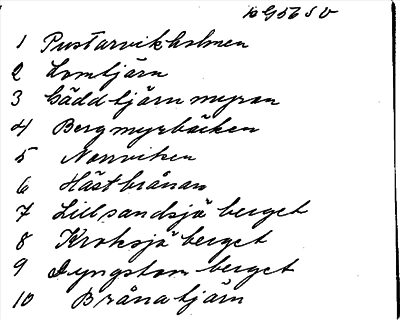 10 G 56 SV
1 Pustarvikholmen
2 Lomtjärn
3 Gäddtjärnmyran
4 Bergmyrbäcken
5 Norrviken
6 Hästbrånan
7 Lillsandsjöberget
8 Kroksjöberget
9 Lyngstornberget
10 Brånatjärn